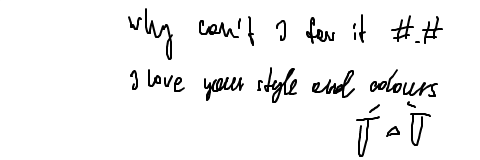 why can't I fav it #.#
I love your style and colours